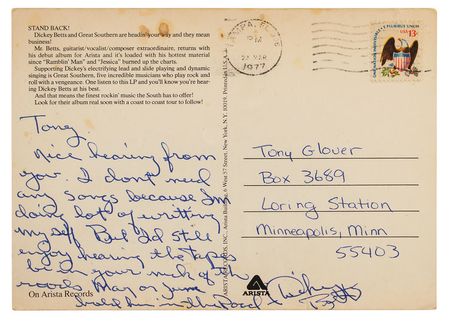 STAND BACK!
Dickey Betts and Great Southern are headin' your way and they mean
business!
Mr. Betts, guitarist/vocalist/composer extraordinaire, returns with
his debut album for Arista and it's loaded with his hottest material
since "Ramblin' Man" and "Jessica" burned up the charts.
Supporting Dickey's electrifying lead and slide playing and dynamic
singing is Great Southern, five incredible musicians who play rock and
roll with a vengeance. One listen to this LP and you'll know you're hear-
ing Dickey Betts at his best.
And that means the finest rockin' music the South has to offer!
Look for their album real soon with a coast to coast tour to follow!
Tony
Nice hearing from
you. I don't need
any songs because I'm
doing lot of writting
my self. But I'd still
enjoy hearing the tapes
be in your neck of the
woods May or June
On Arista Records
ARISTA RECORDS, INC., 6 West 57 Street, New York, N.Y.
PM
MAR
1977
US
13c
Tony Glover
Box 3689
Loring Station
Minneapolis, Minn
55403
ARISTA
Dickey
Betts